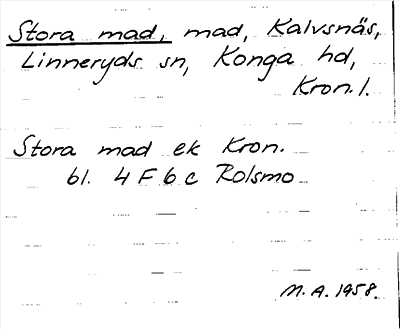 Stora mad, mad, Kalvsnäs,
Linneryds sn, Konga hd,
Kron. l.
Stora mad ek Kron.
bl. 4 F 6 c Rolsmo
M.A. 1958.